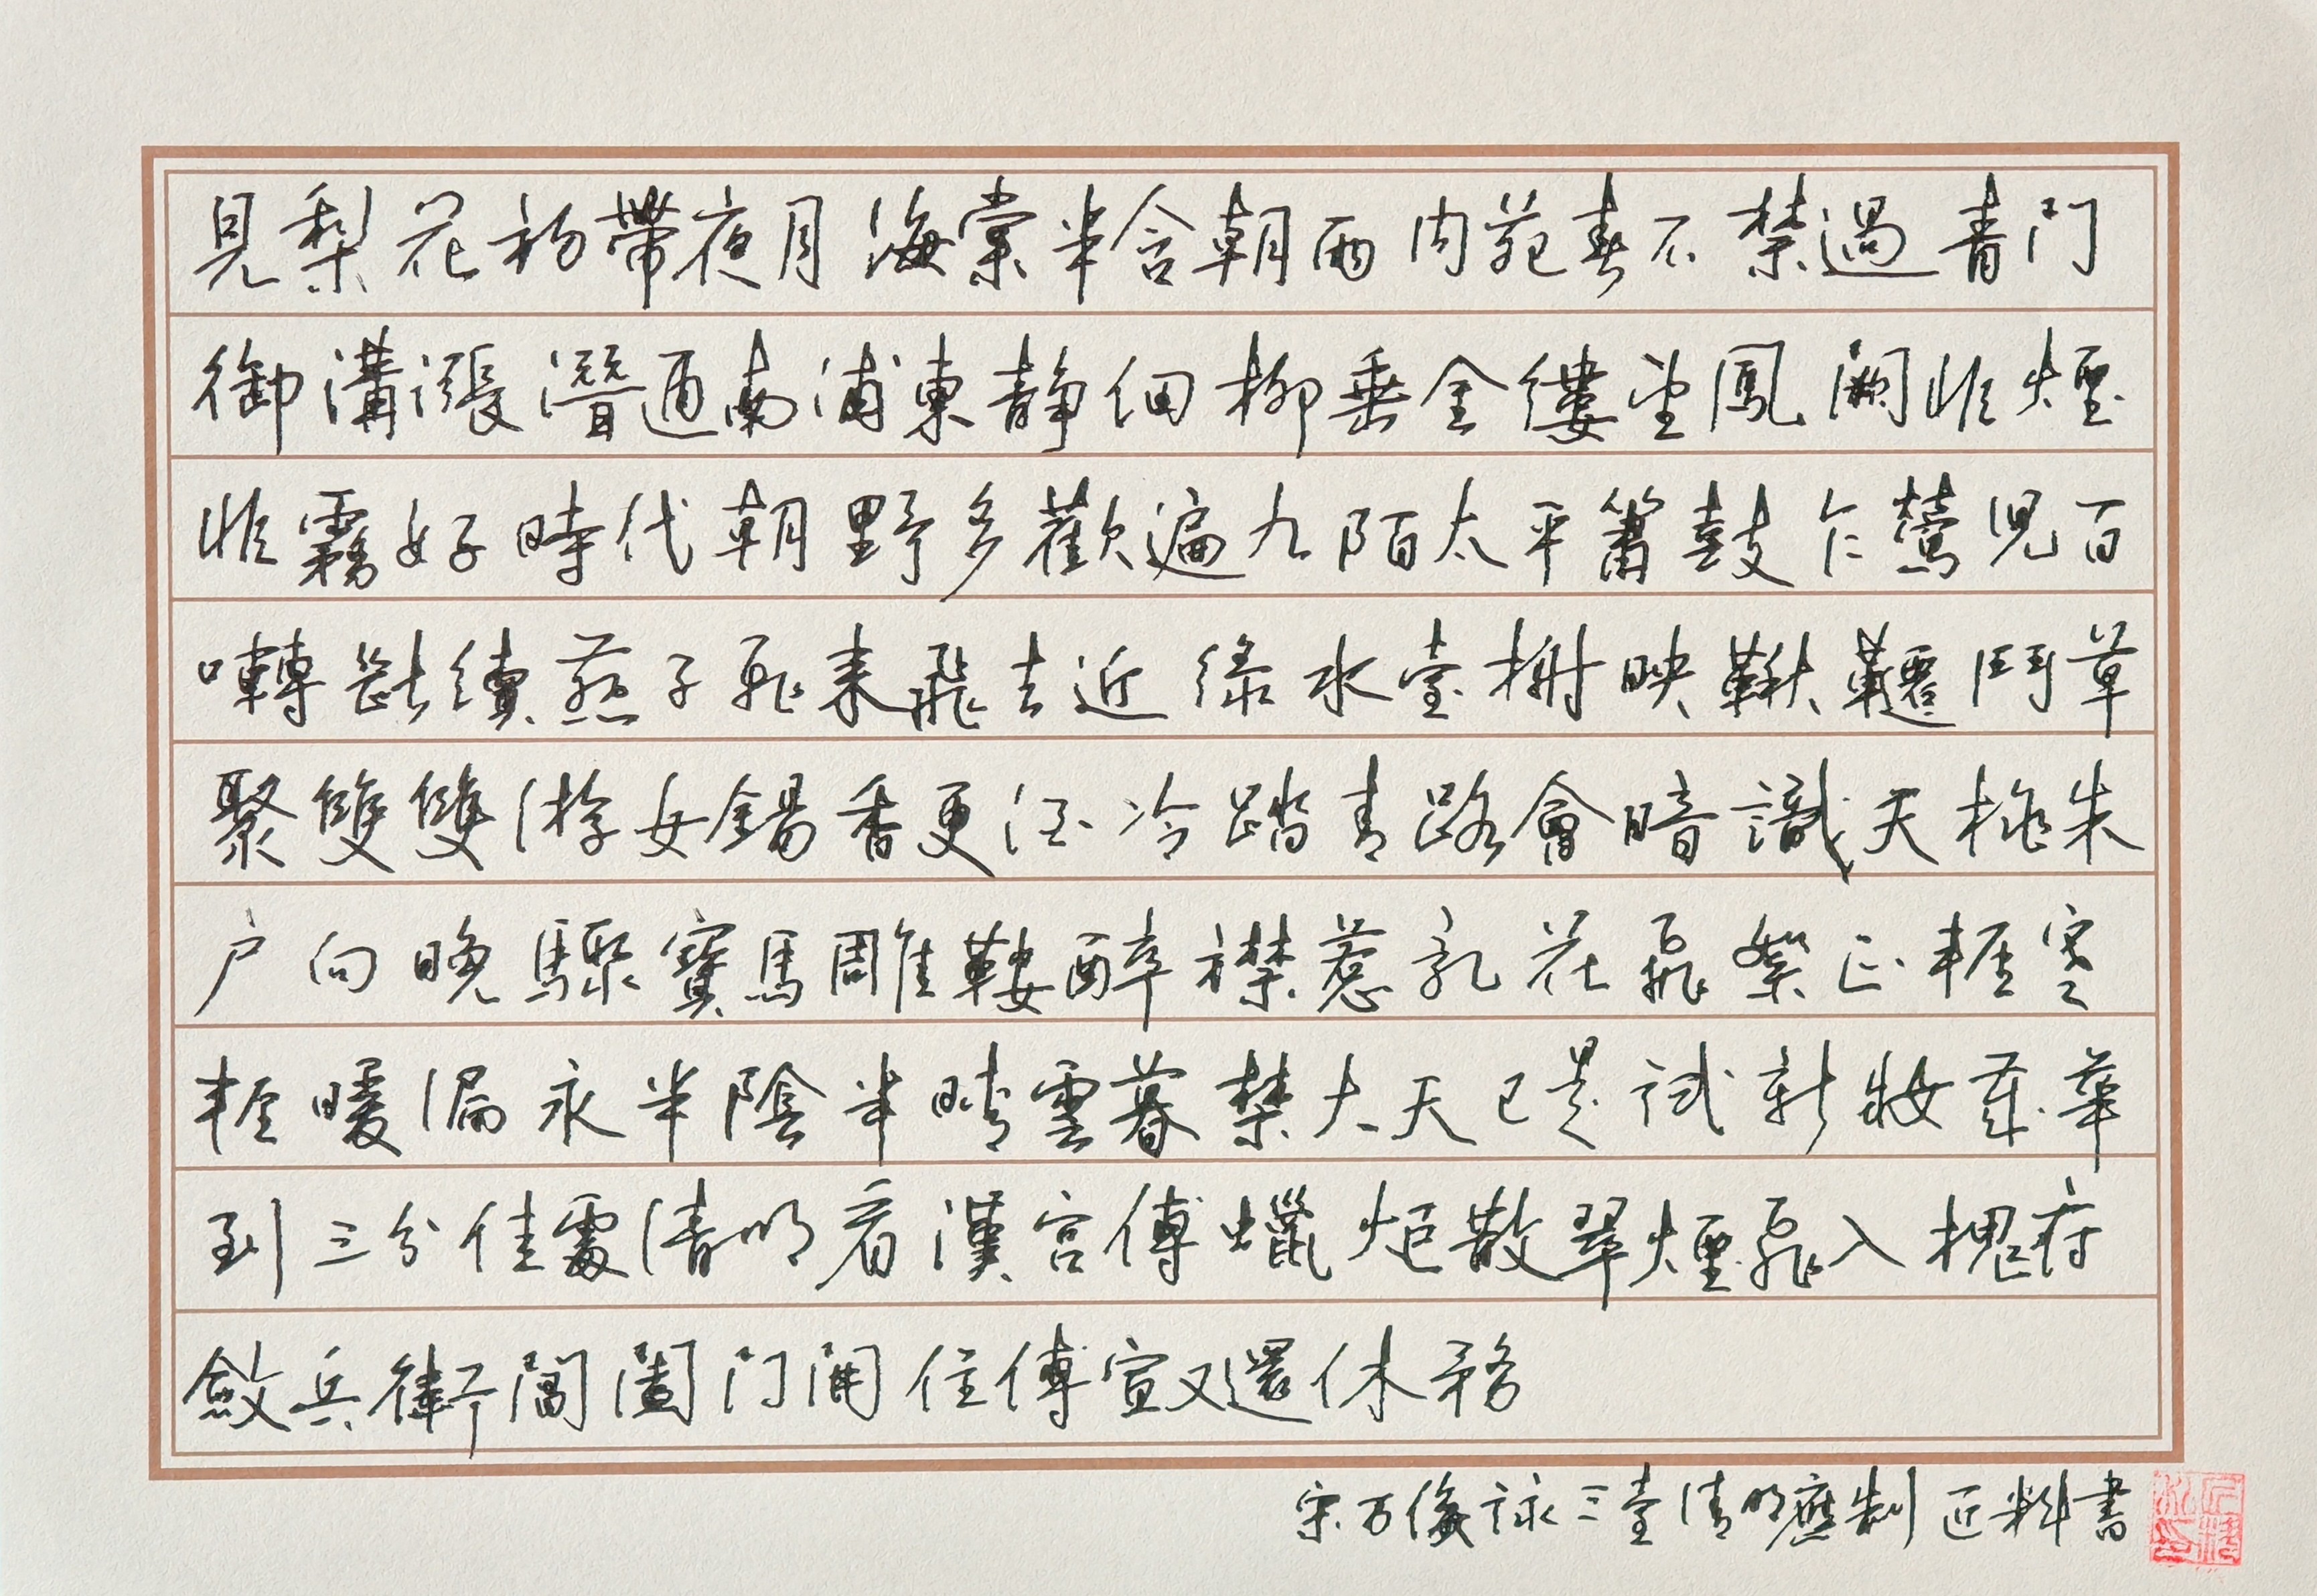 見梨花初帶夜月海棠半含朝雨内苑春不禁過青門
御溝漲潛通南浦東靜細柳垂金縷望鳳闕非煙
非霧好時代朝野多歡遍九陌太平簫鼓乍鶯兒百
囀斷續燕子飛來飛去近綠水臺榭映鞦韆鬥草
聚雙雙游女餳香更酒冷踏青路會暗識夭桃朱
户向晚驟寶馬雕鞍醉襟惹亂花飛絮正輕寒
輕暖漏永半陰半晴雲暮禁火天已是試新妝歲華
到三分佳處清明看漢宮傳蠟炬散翠煙飛入槐府
斂兵衛閶闔門開住傳宣又還休務
宋万俟詠三臺清明應制 匠料書